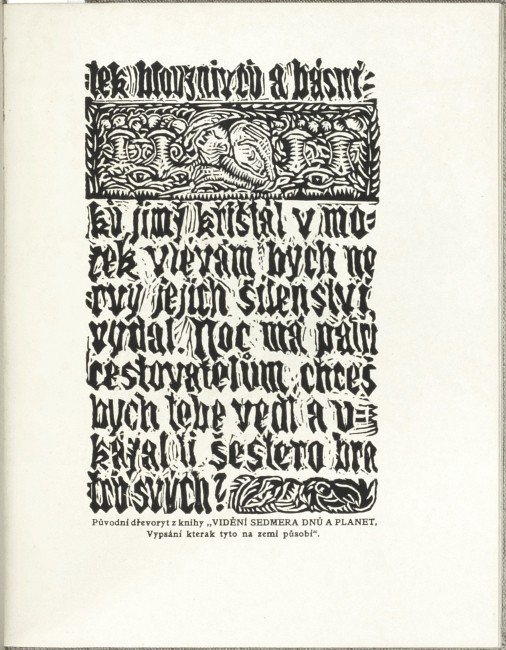 tek blouznivců a básní-
ků jimž křišťál v mo-
zek vlévám bych no
rvý jejich šílenství
vydal. Noc má patří
cestovatelům, chceš
bych tebe vedl a u-
kázal ti šestero bra
trů svých?
Původní dřevoryt z knihy „VIDĚNÍ SEDMERA DNŮ A PLANET,
Vypsání kterak tyto na zemi působí“.